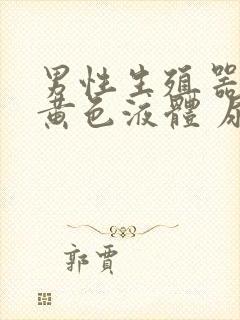 男性生殖器
黃色液體 尿
郭賈